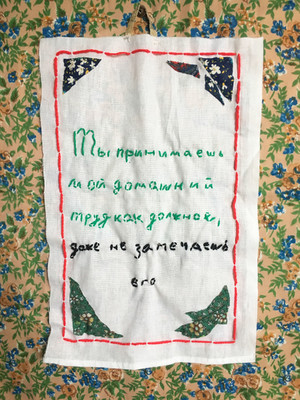 Ты принимаешь
мой домашний
труд как должное,
даже не замечаешь
его